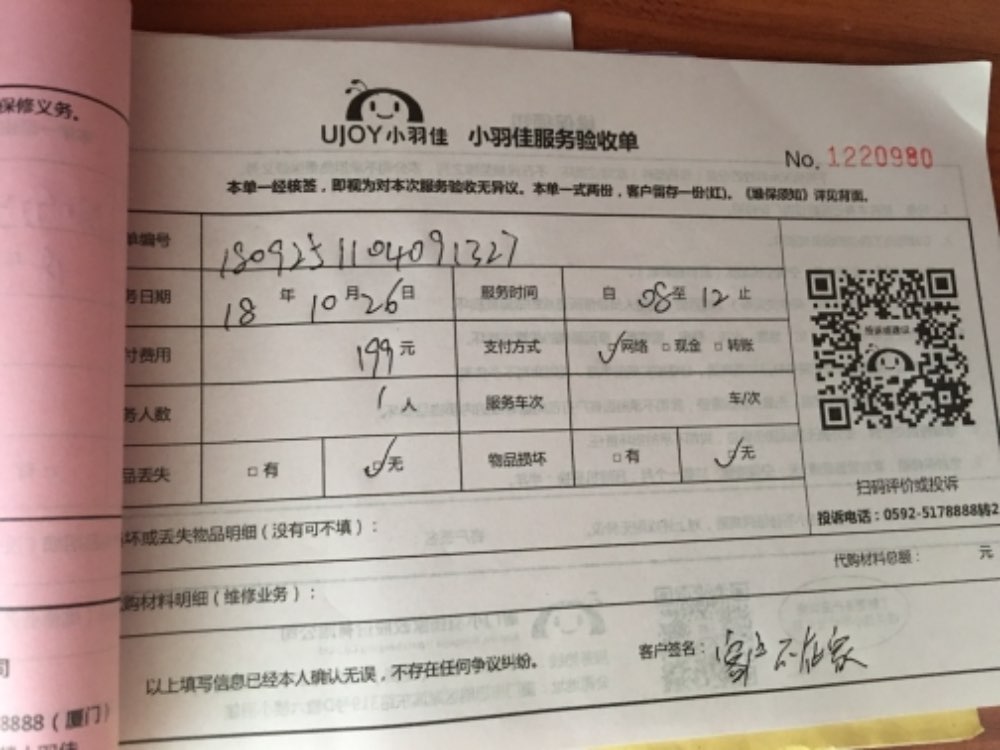 保修义务。
UJOY小羽佳 小羽佳服务验收单
No. 1220980
本单一经核签，即视为对本次服务验收无异议。本单一式两份，客户留存一份(红)。《维保须知》评见背面。
单编号 1809251104091327
务日期 18 年 10 月 26 日 服务时间 自 08 至 12 止
付费用 199 元 支付方式 ☑网络 □现金 □转账
务人数 1 人 服务车次 车/次
品丢失 □有 ☑无 物品损坏 □有 ☑无
投诉或建议
扫码评价或投诉
投诉电话：0592-5178888转2
坏或丢失物品明细（没有可不填）：
代购材料总额： 元
购材料明细（维修业务）：
客户签名：客户不在家
以上填写信息已经本人确认无误，不存在任何争议纠纷。
司
8888（厦门）
小羽佳